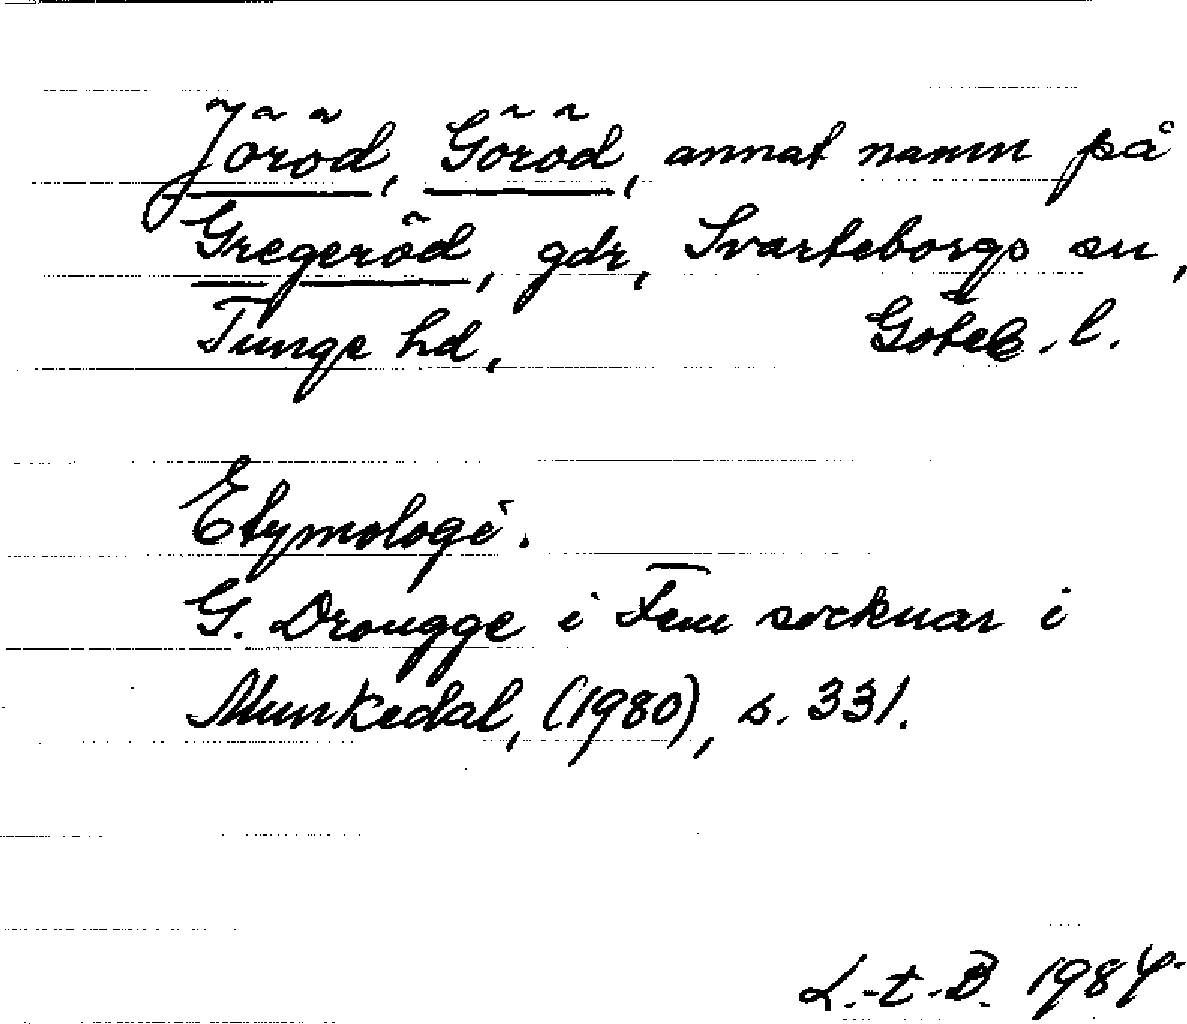 Jöröd, Göröd, annat namn på
Gregeröd, gdr, Svarteborgs sn,
Tunge hd, Göteb. l.
Etymologi.
G. Drougge i Fem socknar i
Munkedal, (1980), s. 331.
L.-t.-B. 1984.